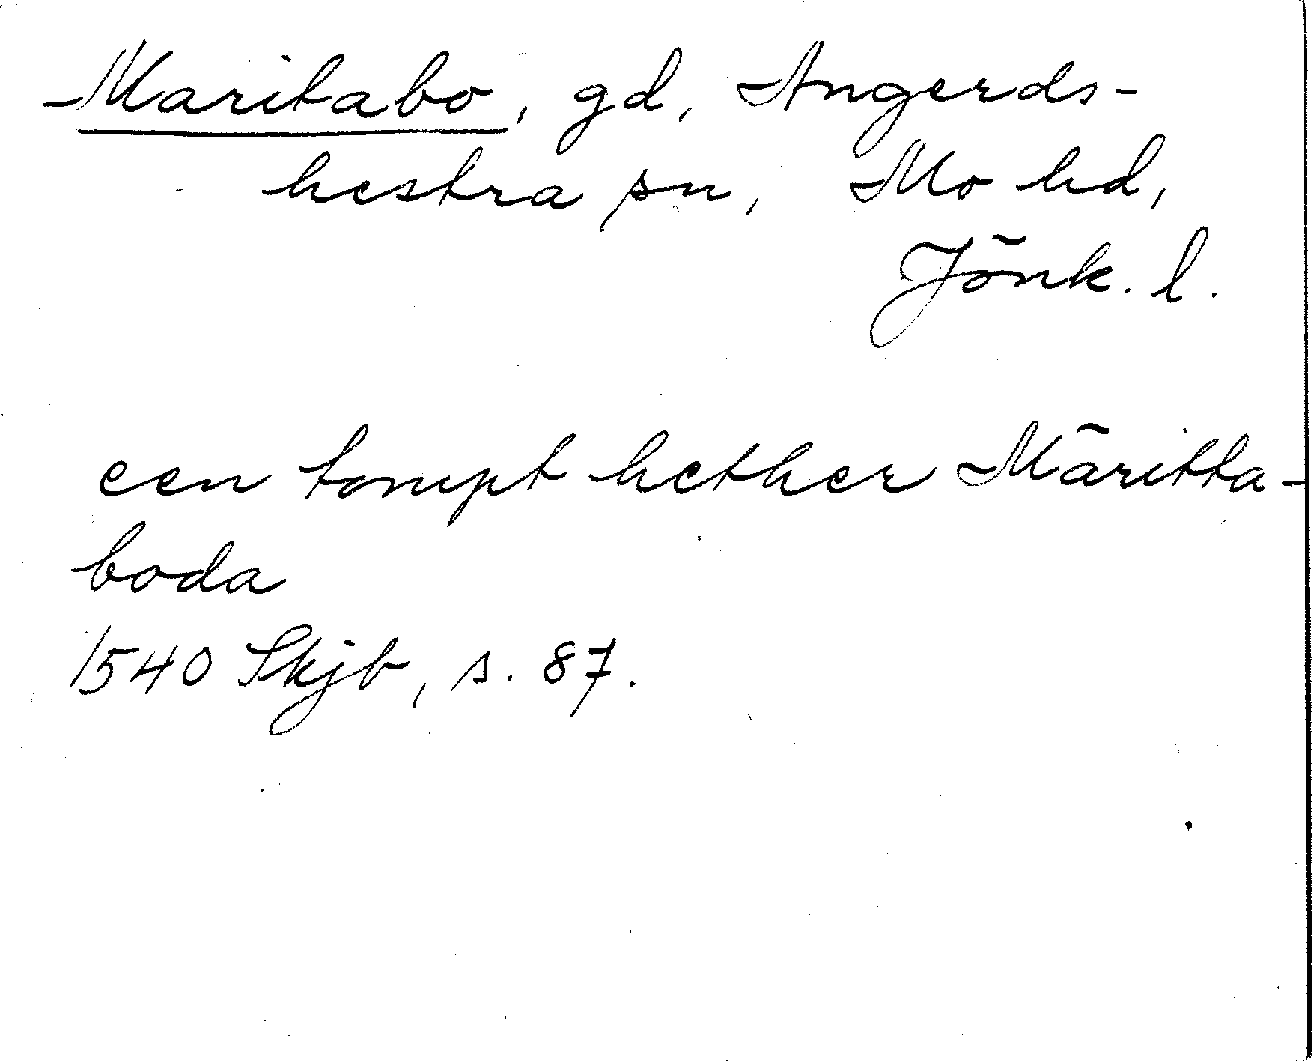 Maritabo, gd, Angerds-
hestra sn, Mo hd,
Jönk. l.
een tompt hether Märitta-
boda
1540 Skjb, s. 87.